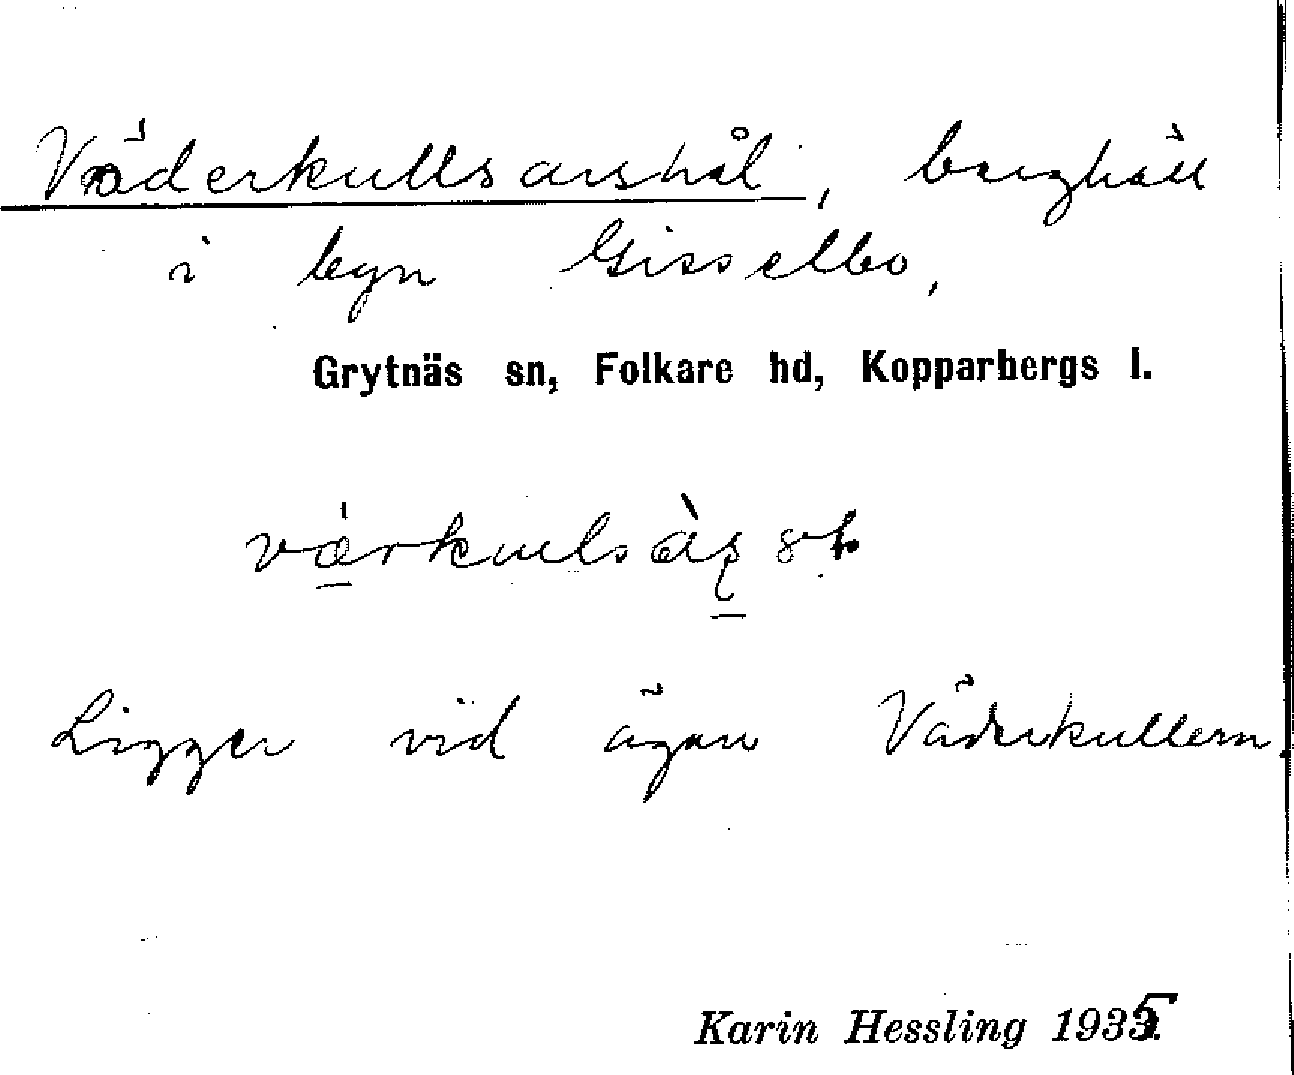 Väderkullsarshål, berghäll
i byn Gisselbo,
Grytnäs sn, Folkare hd, Kopparbergs l.
Ligger vid ägan Väderkullern.
Karin Hessling 1935.